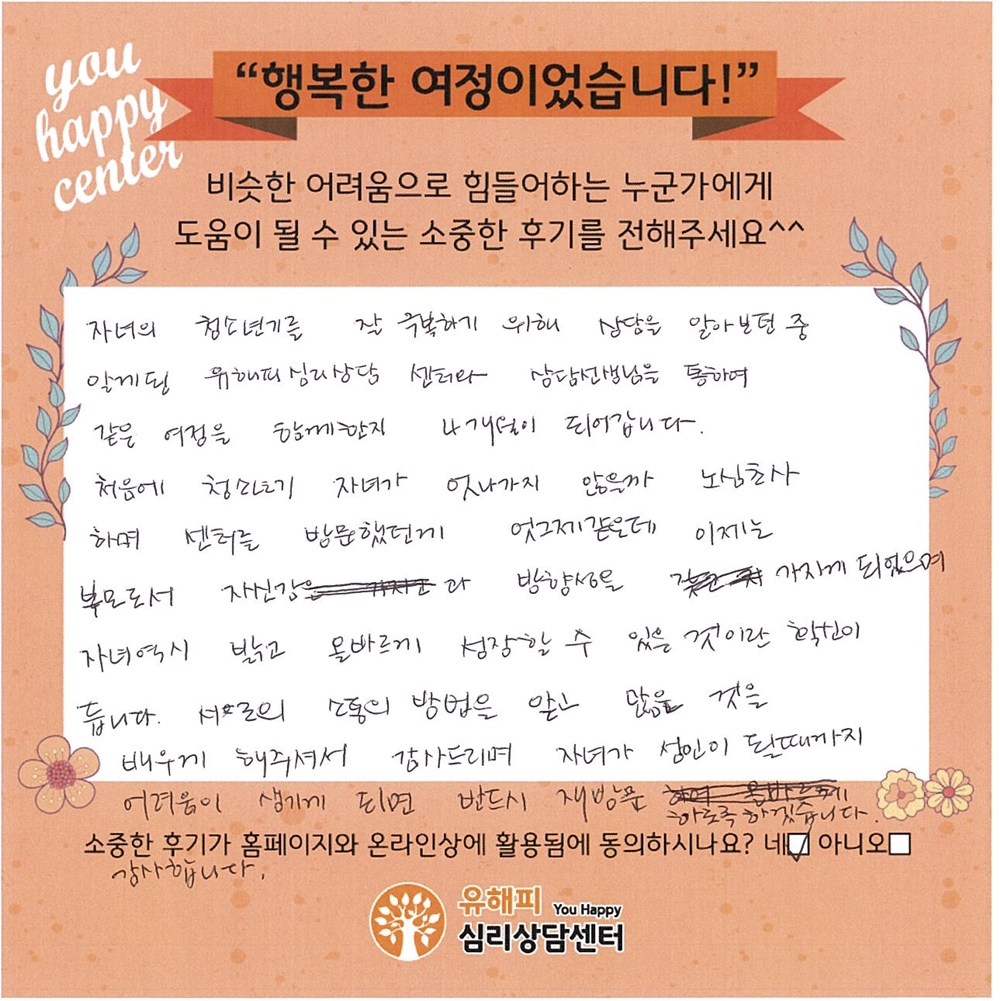 you
happy
center
“행복한 여정이었습니다!”
비슷한 어려움으로 힘들어하는 누군가에게
도움이 될 수 있는 소중한 후기를 전해주세요^^
자녀의 청소년기를 잘 극복하기 위해 상담을 알아보던 중
알게된 유해피심리상담 센터와 상담선생님을 통하여
같은 여정을 함께한지 4개월이 되어갑니다.
처음에 청소년기 자녀가 엇나가지 않을까 노심초사
하며 센터를 방문했던게 엊그제같은데 이제는
부모로서 자신감과 방향성을 가지게 되었으며
자녀역시 밝고 올바르게 성장할 수 있을 것이란 확신이
듭니다. 서로의 소통의 방법을 알고 많을 것을
배우게 해주셔서 감사드리며 자녀가 성인이 될때까지
어려움이 생기게 되면 반드시 재방문
하도록 하겠습니다.
소중한 후기가 홈페이지와 온라인상에 활용됨에 동의하시나요? 네☑ 아니오☐
감사합니다.
유해피 You Happy
심리상담센터